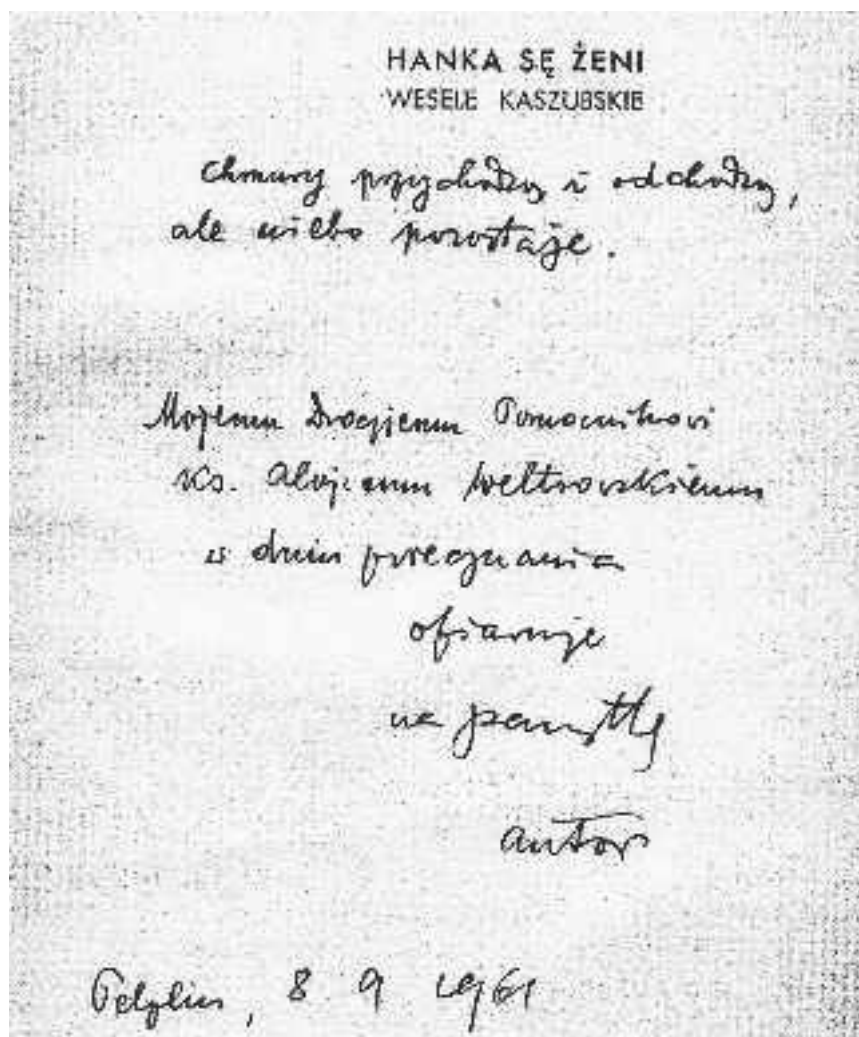 HANKA SĘ ŻENI
WESELE KASZUBSKIE
Chmury przychodzą i odchodzą,
ale niebo pozostaje.
Mojemu Drogiemu Pomocnikowi
ks. Alojzemu Weltrowskiemu
w dniu pożegnania
ofiaruje
na pamiątkę
autor
Pelplin, 8 9 1961